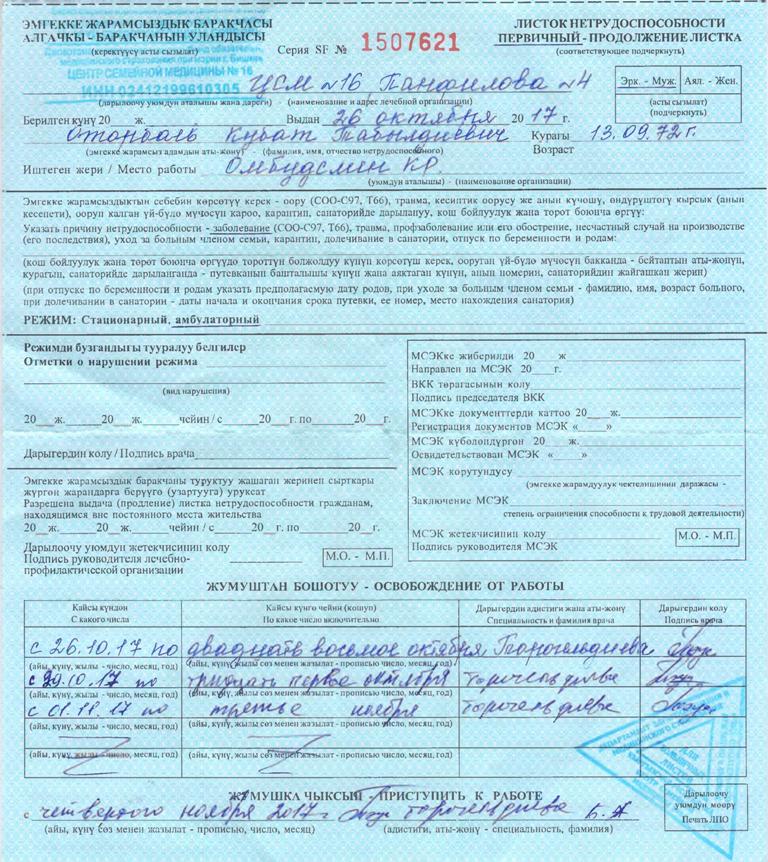 ЭМГЕККЕ ЖАРАМСЫЗДЫК БАРАКЧАСЫ
АЛГАЧКЫ - БАРАКЧАНЫН УЛАНДЫСЫ
(керектүүсү асты сызылат)
Серия SF № 1507621
ЛИСТОК НЕТРУДОСПОСОБНОСТИ
ПЕРВИЧНЫЙ - ПРОДОЛЖЕНИЕ ЛИСТКА
(соответствующее подчеркнуть)
ЦЕНТР СЕМЕЙНОЙ МЕДИЦИНЫ № 16
ИНН 02412199610305
ЦСМ №16, Панфилова №4
(дарылоочу уюмдун аталышы жана дареги) - (наименование и адрес лечебной организации)
Эрк. - Муж. Аял. - Жен.
(асты сызылат)
(подчеркнуть)
Берилген күнү 20 ж. Выдан 26 октября 2017 г.
Оторбаев Кубат Табылдиевич Курагы 13.09.72 г.
(эмгекке жарамсыз адамдын аты-жөнү) - (фамилия, имя, отчество нетрудоспособного) Возраст
Иштеген жери / Место работы Омбудсмен КР.
(уюмдун аталышы) - (наименование организации)
Эмгекке жарамсыздыктын себебин көрсөтүү керек - оору (СОО-С97, Т66), травма, кесиптик оорусу же анын күчөшү, өндүрүштөгү кырсык (анын кесепети), ооруп калган үй-бүлө мүчөсүн кароо, карантин, санаторийде дарылануу, кош бойлуулук жана торот боюнча өргүү:
Указать причину нетрудоспособности - заболевание (СОО-С97, Т66), травма, профзаболевание или его обострение, несчастный случай на производстве (его последствия), уход за больным членом семьи, карантин, долечивание в санатории, отпуск по беременности и родам:
(кош бойлуулук жана торот боюнча өргүүдө тороттүн болжолдуу күнүн көрсөтүш керек, ооруган үй-бүлө мүчөсүн бакканда - бейтаптын аты-жөнүн, курагын, санаторийде дарыланганда - путевканын башталышы күнүн жана аяктаган күнүн, анын номерин, санаторийдин жайгашкан жерин)
(при отпуске по беременности и родам указать предполагаемую дату родов, при уходе за больным членом семьи - фамилию, имя, возраст больного, при долечивании в санатории - даты начала и окончания срока путевки, ее номер, место нахождения санатория)
РЕЖИМ: Стационарный, амбулаторный
Режимди бузгандыгы тууралуу белгилер
Отметки о нарушении режима
(вид нарушения)
20 ж. 20 ж. чейин / с 20 г. по 20 г.
Дарыгердин колу / Подпись врача
Эмгекке жарамсыздык баракчаны туруктуу жашаган жеринен сырткары жүргөн жарандарга берүүгө (узартууга) уруксат
Разрешена выдача (продление) листка нетрудоспособности гражданам, находящимся вне постоянного места жительства
20 ж. 20 ж. чейин / с 20 г. по 20 г.
Дарылоочу уюмдун жетекчисинин колу
Подпись руководителя лечебно-профилактической организации
М.О. - М.П.
МСЭКке жиберилди 20 ж
Направлен на МСЭК 20 г.
ВКК төрагасынын колу
Подпись председателя ВКК
МСЭКке документтерди каттоо 20 ж.
Регистрация документов МСЭК « »
МСЭК күбөлөндүргөн 20 ж.
Освидетельствован МСЭК « »
МСЭК корутундусу
(эмгекке жарамдуулук чектелишинин даражасы -
Заключение МСЭК
степень ограничения способности к трудовой деятельности)
МСЭК жетекчисинин колу
Подпись руководителя МСЭК
М.О. - М.П.
ЖУМУШТАН БОШОТУУ - ОСВОБОЖДЕНИЕ ОТ РАБОТЫ
Кайсы күндөн
С какого числа
Кайсы күнгө чейин (кошуп)
По какое число включительно
Дарыгердин адистиги жана аты-жөнү
Специальность и фамилия врача
Дарыгердин колу
Подпись врача
с 26.10.17 по двадцать восьмое октября
(айы, күнү, жылы - число, месяц, год) (айы, күнү, жылы сөз менен жазылат - прописью число, месяц, год)
с 29.10.17 по тридцать первое октября
(айы, күнү, жылы - число, месяц, год) (айы, күнү, жылы сөз менен жазылат - прописью число, месяц, год)
с 01.11.17 по третье ноября
(айы, күнү, жылы - число, месяц, год) (айы, күнү, жылы сөз менен жазылат - прописью число, месяц, год)
(айы, күнү, жылы - число, месяц, год) (айы, күнү, жылы сөз менен жазылат - прописью число, месяц, год)
ЖУМУШКА ЧЫКСЫН - ПРИСТУПИТЬ К РАБОТЕ
с четвертого ноября 2017 г
(айы, күнү сөз менен жазылат - прописью, число, месяц) (адистиги, аты-жөнү - специальность, фамилия)
Дарылоочу уюмдун мөөрү
Печать ЛПО